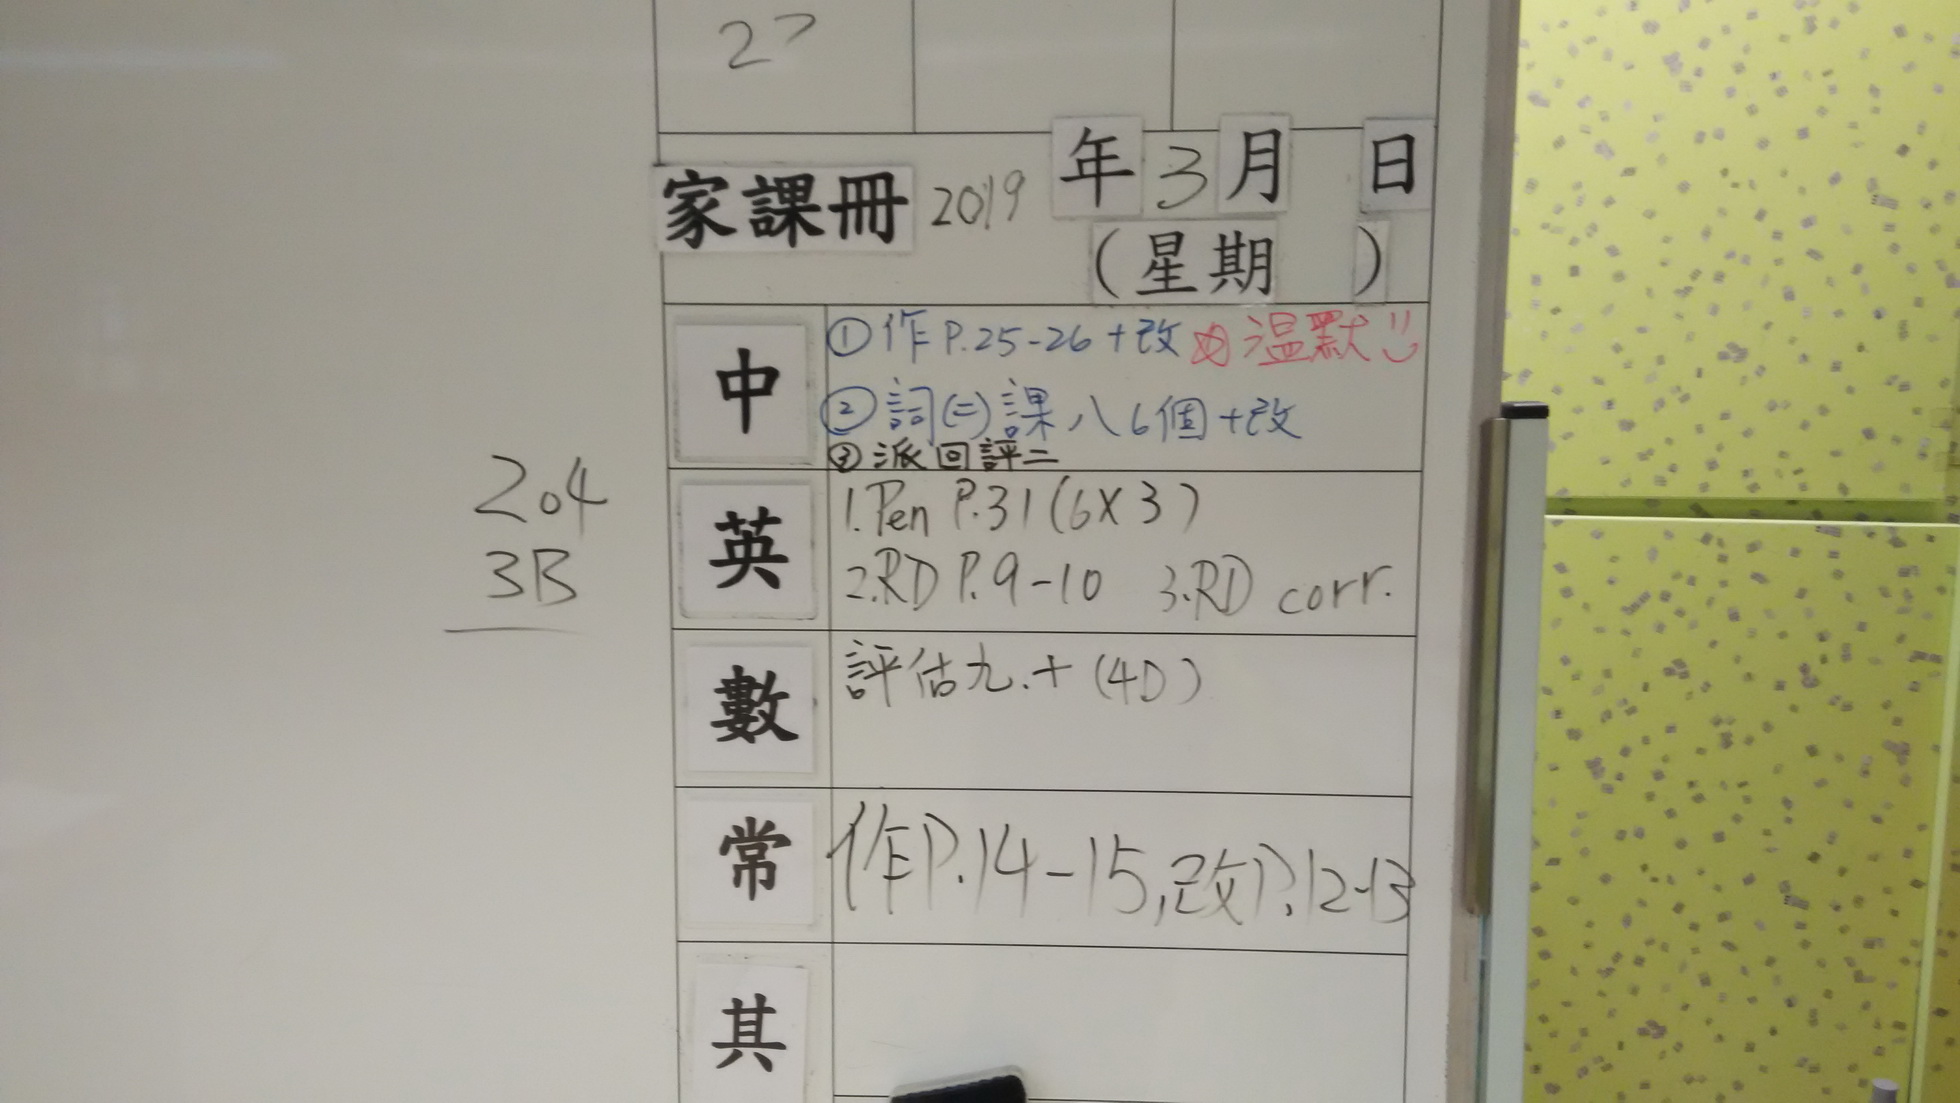 27
家課冊 2019 年 3 月 日
(星期 )
中 ①作 P.25-26 + 改 ④ 温默
②詞(二)課八 6個+改
③派回評二
英 1.Pen P.31 (6X3)
2.RD P.9-10 3.RD corr.
數 評估九.十 (4D)
常 作P.14-15,改P.12-13
其
204
3B